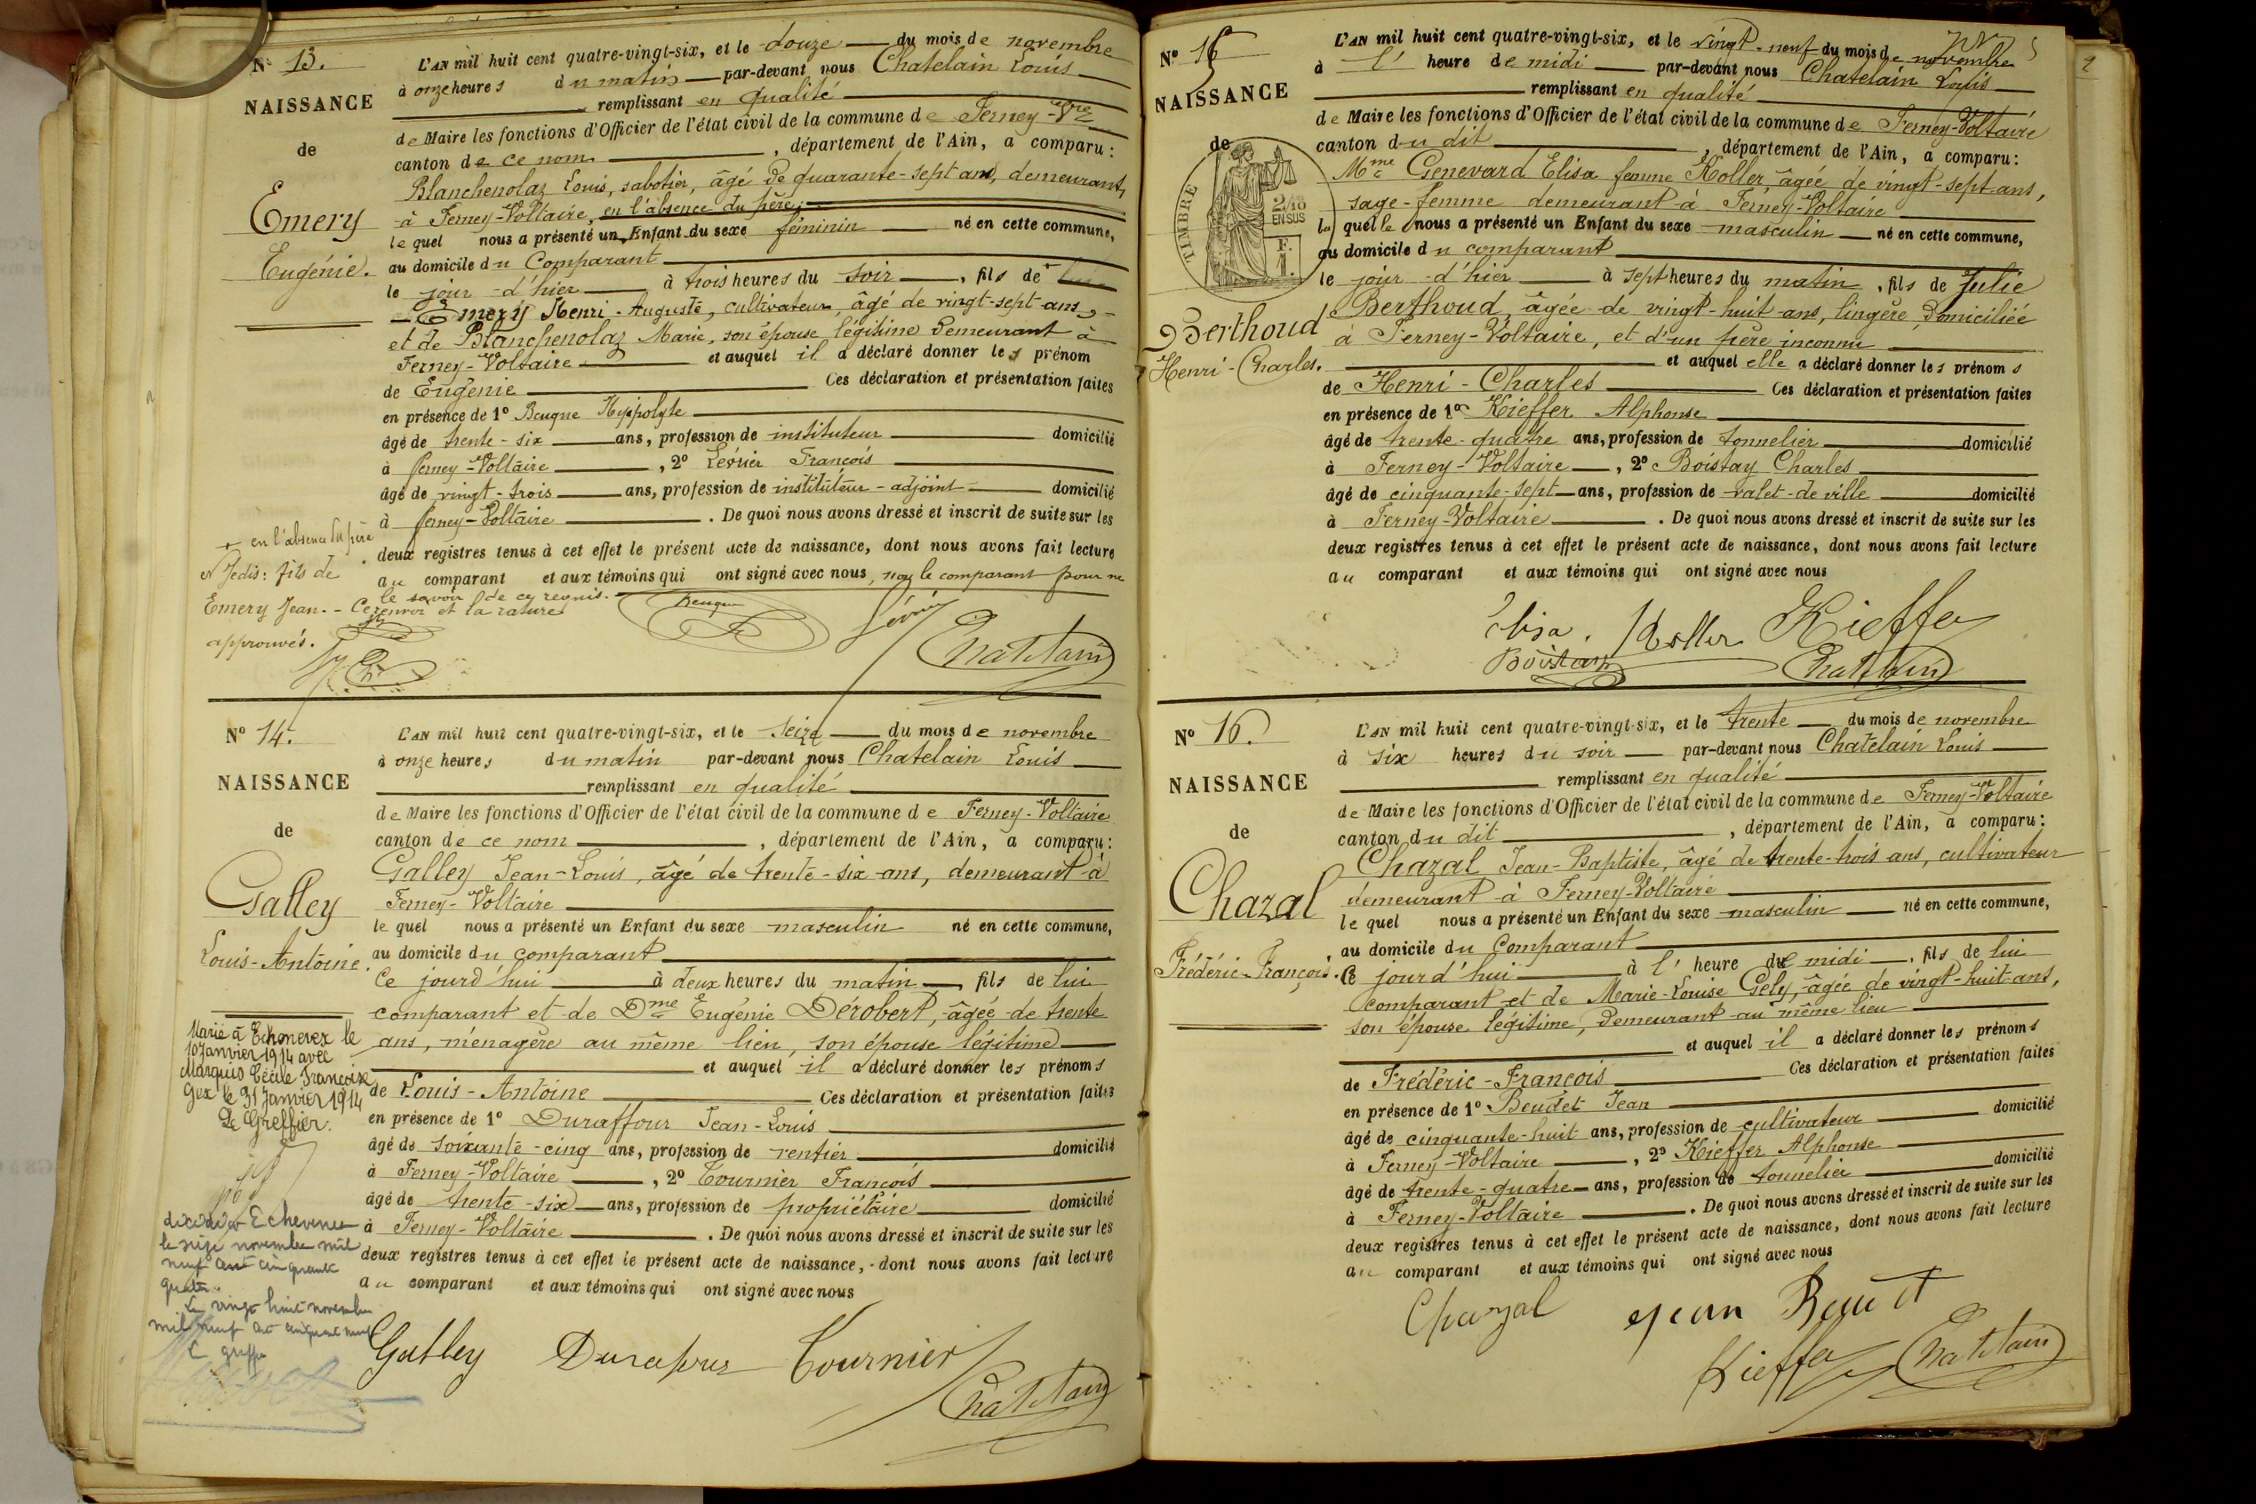 Nº 13.
NAISSANCE
de
Emery
Eugénie.
L'AN mil huit cent quatre-vingt-six, et le douze du mois de novembre
à onze heures du matin par-devant nous Chatelain Louis
remplissant en qualité
de Maire les fonctions d'Officier de l'état civil de la commune de Ferney-Vre
canton de ce nom, département de l'Ain, a comparu:
Blanchenolaz Louis, sabotier, âgé de quarante-sept ans, demeurant
à Ferney-Voltaire, en l'absence du père;
le quel nous a présenté un Enfant du sexe féminin né en cette commune,
au domicile du Comparant
le jour d'hier à trois heures du soir, fils de
Emery Henri-Auguste, cultivateur, âgé de vingt-sept ans,
et de Blanchenolaz Marie, son épouse légitime demeurant à
Ferney-Voltaire et auquel il a déclaré donner les prénom
de Eugénie Ces déclaration et présentation faites
en présence de 1º Beugne Hyppolyte
âgé de trente-six ans, profession de instituteur domicilié
à ferney-Voltaire, 2º Levrier François
âgé de vingt-trois ans, profession de instituteur-adjoint domicilié
à ferney-Voltaire. De quoi nous avons dressé et inscrit de suite sur les
deux registres tenus à cet effet le présent acte de naissance, dont nous avons fait lecture
au comparant et aux témoins qui ont signé avec nous, non le comparant pour ne
le savoir de ce requis.
+ en l'absence du père
Emery Jean. - Ce renvoi et la rature
approuvés.
Chatelain
Nº 14.
NAISSANCE
de
Galley
Louis-Antoine.
L'AN mil huit cent quatre-vingt-six, et le seize du mois de novembre
à onze heures du matin par-devant nous Chatelain Louis
remplissant en qualité
de Maire les fonctions d'Officier de l'état civil de la commune de Ferney-Voltaire
canton de ce nom, département de l'Ain, a comparu:
Galley Jean-Louis, âgé de trente-six ans, demeurant à
Ferney-Voltaire
le quel nous a présenté un Enfant du sexe masculin né en cette commune,
au domicile du comparant
Ce jourd'hui à deux heures du matin, fils de lui
comparant et de Dme Eugénie Dérobert, âgée de trente
ans, ménagère au même lieu, son épouse légitime
et auquel il a déclaré donner les prénoms
de Louis-Antoine Ces déclaration et présentation faites
en présence de 1º Duraffour Jean-Louis
âgé de soixante-cinq ans, profession de rentier domicilié
à Ferney-Voltaire, 2º Tournier François
âgé de trente-six ans, profession de propriétaire domicilié
à Ferney-Voltaire. De quoi nous avons dressé et inscrit de suite sur les
deux registres tenus à cet effet le présent acte de naissance, dont nous avons fait lecture
au comparant et aux témoins qui ont signé avec nous
Marié à Echenevex le
10 Janvier 1914 avec
Marquis Cécile Françoise
Gex le 31 Janvier 1914
Le Greffier.
Echenevex
le seize novembre mil
neuf cent cinquante
quatre.
Le vingt huit novembre
mil neuf cent cinquante
Galley Tournier
Chatelain
Nº 15
NAISSANCE
de
TIMBRE
2/10
EN SUS
F.
1.
Berthoud
Henri-Charles.
L'AN mil huit cent quatre-vingt-six, et le vingt-neuf du mois de novembre
à l' heure de midi par-devant nous Chatelain Louis
remplissant en qualité
de Maire les fonctions d'Officier de l'état civil de la commune de Ferney-Voltaire
canton du dit, département de l'Ain, a comparu:
Mme Genevard Elisa femme Koller âgée de vingt-sept ans,
sage-femme demeurant à Ferney-Voltaire
la quelle nous a présenté un Enfant du sexe masculin né en cette commune,
au domicile du comparant
le jour d'hier à sept heures du matin, fils de Julie
Berthoud, âgée de vingt-huit ans, lingère, domiciliée
à Ferney-Voltaire, et d'un père inconnu
et auquel elle a déclaré donner les prénoms
de Henri-Charles Ces déclaration et présentation faites
en présence de 1º Kieffer Alphonse
âgé de trente-quatre ans, profession de tonnelier domicilié
à Ferney-Voltaire, 2º Boistay Charles
âgé de cinquante-sept ans, profession de valet-de-ville domicilié
à Ferney-Voltaire. De quoi nous avons dressé et inscrit de suite sur les
deux registres tenus à cet effet le présent acte de naissance, dont nous avons fait lecture
au comparant et aux témoins qui ont signé avec nous
Elisa. Koller Kieffer
Boistay Chatelain
Nº 16.
NAISSANCE
de
Chazal
Frédéric-François.
L'AN mil huit cent quatre-vingt-six, et le trente du mois de novembre
à six heures du soir par-devant nous Chatelain Louis
remplissant en qualité
de Maire les fonctions d'Officier de l'état civil de la commune de Ferney-Voltaire
canton du dit, département de l'Ain, a comparu:
Chazal Jean-Baptiste, âgé de trente-trois ans, cultivateur
demeurant à Ferney-Voltaire
le quel nous a présenté un Enfant du sexe masculin né en cette commune,
au domicile du Comparant
Ce jourd'hui à l' heure de midi, fils de lui
comparant et de Marie-Louise Gely, âgée de vingt-huit ans,
son épouse légitime, demeurant au même lieu
et auquel il a déclaré donner les prénoms
de Frédéric-François Ces déclaration et présentation faites
en présence de 1º Beudet Jean
âgé de cinquante-huit ans, profession de cultivateur domicilié
à Ferney-Voltaire, 2º Kieffer Alphonse
âgé de trente-quatre ans, profession de tonnelier domicilié
à Ferney-Voltaire. De quoi nous avons dressé et inscrit de suite sur les
deux registres tenus à cet effet le présent acte de naissance, dont nous avons fait lecture
au comparant et aux témoins qui ont signé avec nous
Chazal Jean
Kieffer Chatelain
2